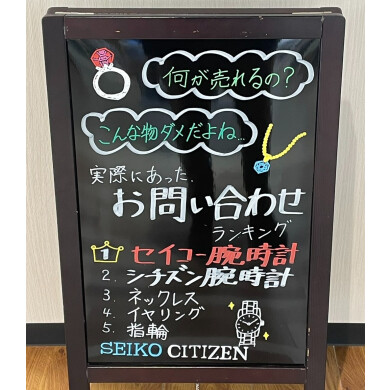 何が売れるの?
こんな物ダメだよね...
実際にあった
お問い合わせ
ランキング
1 セイコー腕時計
2. シチズン腕時計
3. ネックレス
4. イヤリング
5. 指輪
SEIKO CITIZEN